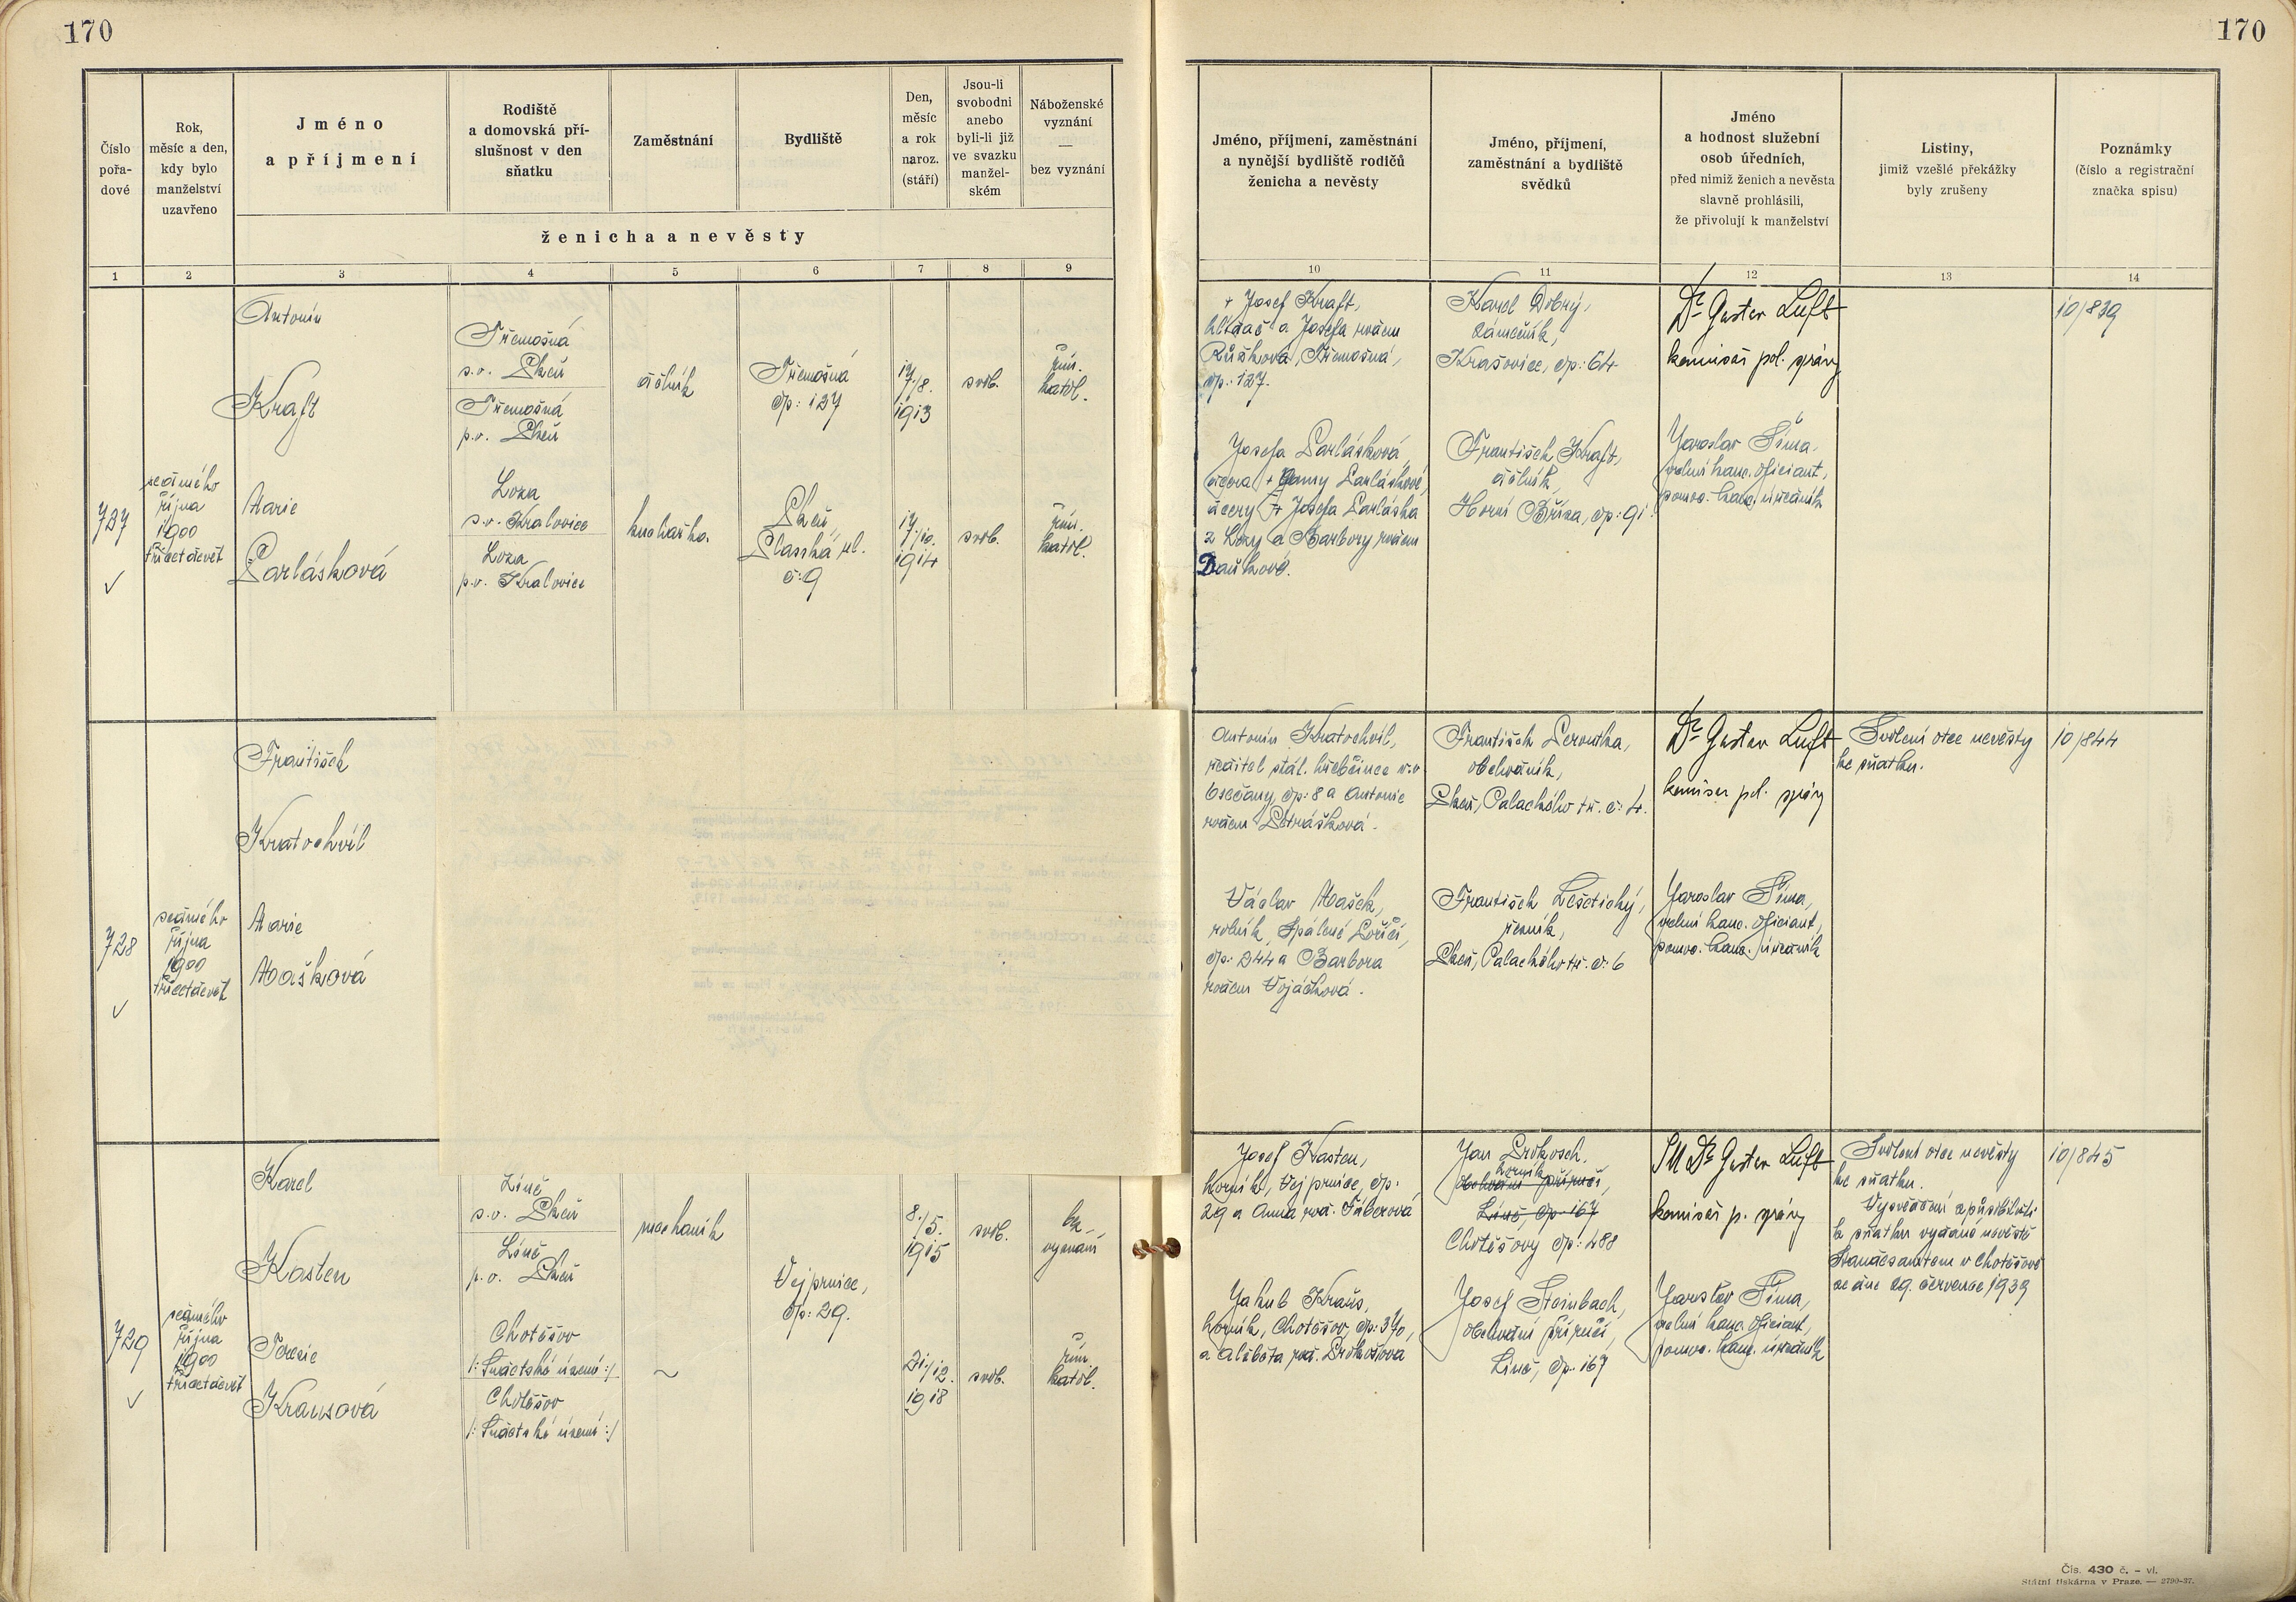 170
170
Číslo
pořa-
dové
Rok,
měsíc a den,
kdy bylo
manželství
uzavřeno
Jméno
a příjmení
Rodiště
a domovská pří-
slušnost v den
sňatku
Zaměstnání
Bydliště
Den,
měsíc
a rok
naroz.
(stáří)
Jsou-li
svobodni
anebo
byli-li již
ve svazku
manžel-
ském
Náboženské
vyznání
—
bez vyznání
ženicha a nevěsty
Jméno, příjmení, zaměstnání
a nynější bydliště rodičů
ženicha a nevěsty
Jméno, příjmení,
zaměstnání a bydliště
svědků
Jméno
a hodnost služební
osob úředních,
před nimiž ženich a nevěsta
slavně prohlásili,
že přivolují k manželství
Listiny,
jimiž vzešlé překážky
byly zrušeny
Poznámky
(číslo a registrační
značka spisu)
1 2 3 4 5 6 7 8 9 10 11 12 13 14
727
sedmého
října
1900
třicetdevět
Antonín
Kraft
Třemošná
s.o. Plzeň
Třemošná
p.o. Plzeň
dělník
Třemošná
čp: 127
17./8.
1913
svob.
řím.
katol.
Marie
Parlásková
Loza
s.o. Kralovice
Loza
p.o. Kralovice
kuchařka.
Plzeň,
č: 9
17./10.
1914
svob.
řím.
katol.
+ Josef Kraft,
hlídač a Josefa rozen
Růžková, Třemošná,
čp: 127.
Josefa Parlásková,
dcera + Anny Parláskové,
dcery + Josefa Parláska
z Lozy a Barbory rozen
Daňkové.
Karel Dobrý,
zámečník,
Krašovice, čp: 64
František Kraft,
dělník,
Horní Bříza, čp: 91
Dr Gustav Luft
komisař pol. správy
Jaroslav Šíma,
velmi kanc. oficiant,
pomoc. kanc. úředník
10/839
728
sedmého
října
1900
třicetdevět
František
Kratochvíl
Marie
Mašková
Antonín Kratochvíl,
ředitel stát. hřebčince v.v.
Osečany, čp: 8 a Antonie
rozen Petrášková.
Václav Mašek,
rolník, Spálené Poříčí,
čp: 244 a Barbora
rozen Vojáčková.
František Peroutka,
obchodník,
Plzeň, Palackého tř. č: 4.
František Leštický,
řezník,
Plzeň, Palackého tř. č: 6
Dr Gustav Luft
komisař pol. správy
Jaroslav Šíma,
velmi kanc. oficiant,
pomoc. kanc. úředník
Svolení otce nevěsty
ke sňatku.
10/844
729
sedmého
října
1900
třicetdevět
Karel
Kasten
Líně
s.o. Plzeň
Líně
p.o. Plzeň
mechanik
Vejprnice,
čp: 29.
8./5.
1915
svob.
bez
vyznání
Terezie
Krausová
Chotěšov
/: Sudetské území :/
Chotěšov
/: Sudetské území :/
~
21./12.
1918
svob.
řím.
katol.
Josef Kasten,
horník, Vejprnice, čp:
29 a Anna roz. Táberová
Jakub Kraus,
horník, Chotěšov, čp: 370,
a Alžběta roz. Prokošová
Jan Prokosch,
horník
obchodní příručí,
Líně, čp: 167
Chotěšovy čp: 488
Josef Steinbach,
obchodní příručí,
Líně, čp: 167
JUDr Gustav Luft
komisař p. správy
Jaroslav Šíma,
velmi kanc. oficiant,
pomoc. kanc. úředník
Svolení otce nevěsty
ke sňatku.
Vysvědčení způsobilosti
k sňatku vydané nevěstě
Standesamtem v Chotěšově
ze dne 29. července 1939
10/845
Čís. 430 č. – vl.
Státní tiskárna v Praze. — 2790-37.